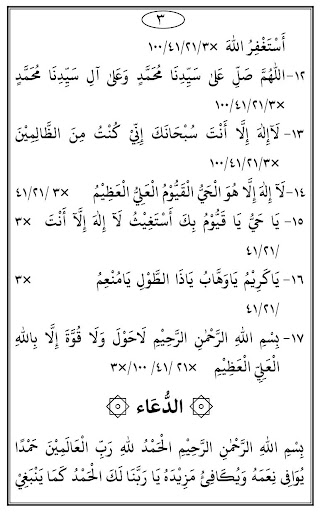 ٣
أَسْتَغْفِرُ اللهَ ×٣/٢١/٤١/١٠٠
١٢- اَللّٰهُمَّ صَلِّ عَلَى سَيِّدِنَا مُحَمَّدٍ وَعَلَى آلِ سَيِّدِنَا مُحَمَّدٍ
×٣/٢١/٤١/١٠٠
١٣- لَآ إِلٰهَ إِلَّا أَنْتَ سُبْحَانَكَ إِنِّيْ كُنْتُ مِنَ الظَّالِمِيْنَ
×٣/٢١/٤١/١٠٠
١٤- لَآ إِلٰهَ إِلَّا هُوَ الْحَيُّ الْقَيُّوْمُ الْعَلِيُّ الْعَظِيْمُ ×٣ /٤١/٢١
١٥- يَا حَيُّ يَا قَيُّوْمُ بِكَ أَسْتَغِيْثُ لَآ إِلٰهَ إِلَّآ أَنْتَ ×٣
/٤١/٢١
١٦- يَاكَرِيْمُ يَاوَهَّابُ يَاذَا الطَّوْلِ يَامُنْعِمُ ×٣
/٤١/٢١
١٧- بِسْمِ اللهِ الرَّحْمٰنِ الرَّحِيْمِ لَاحَوْلَ وَلَا قُوَّةَ إِلَّا بِاللهِ
الْعَلِيِّ الْعَظِيْمِ ×٣/١٠٠ /٤١/ ٢١×
۞ الدُّعَاء ۞
بِسْمِ اللهِ الرَّحْمٰنِ الرَّحِيْمِ الْحَمْدُ لِلهِ رَبِّ الْعَالَمِيْنَ حَمْدًا
يُوَافِي نِعَمَهُ وَيُكَافِئُ مَزِيْدَهُ يَا رَبَّنَا لَكَ الْحَمْدُ كَمَا يَنْبَغِيْ